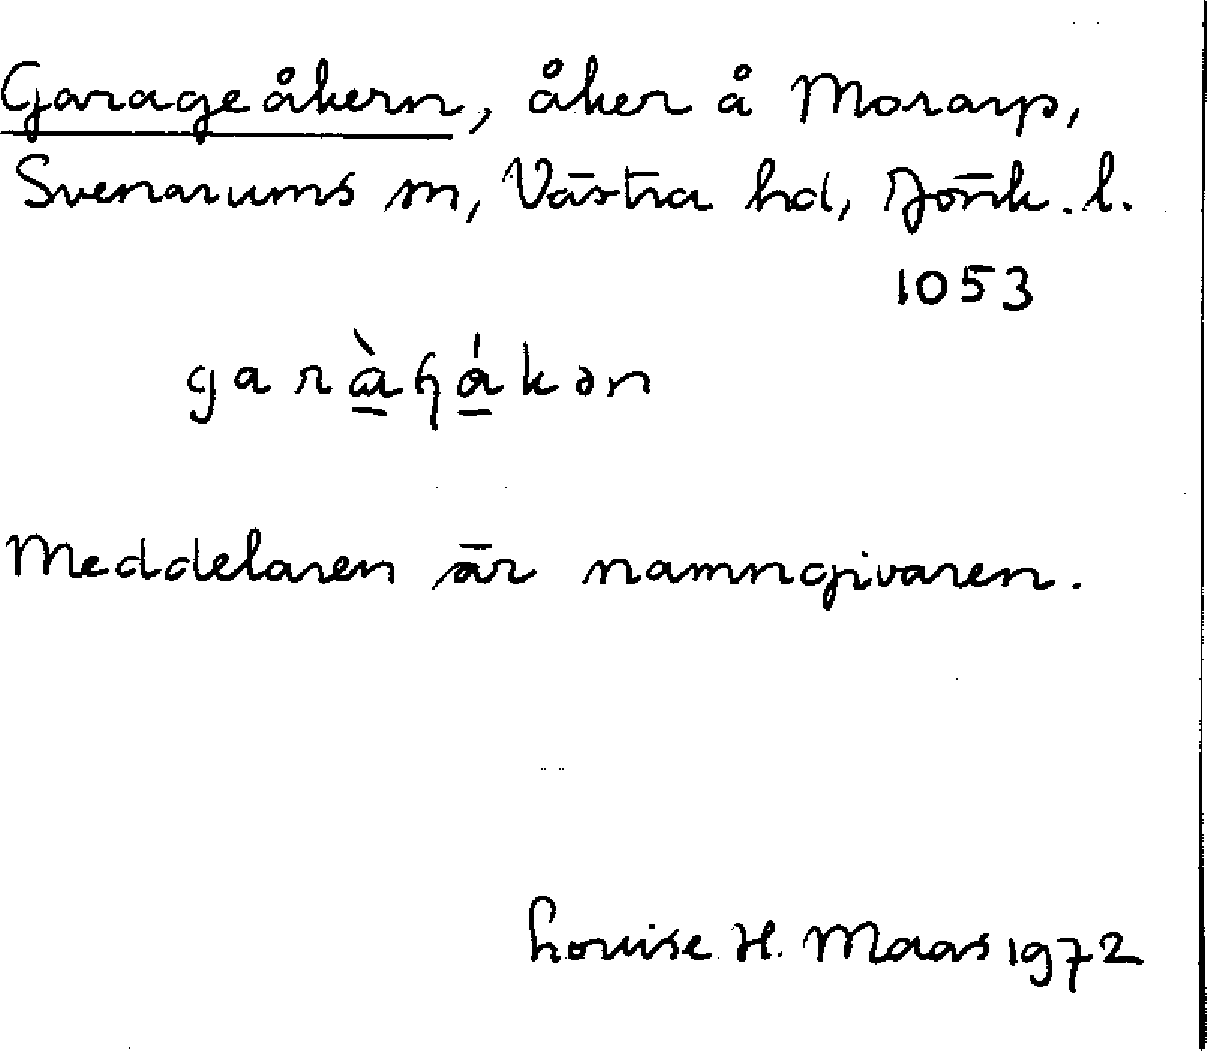 Garageåkern, åker å Morarp,
Svenarums sn, Västra hd, Jönk. l.
1053
garàɧákən
Meddelaren är namngivaren.
Louise H. Maas 1972